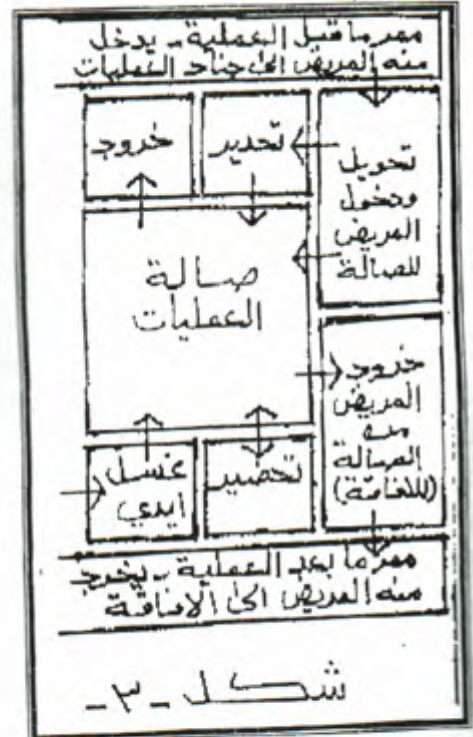 ممر ما قبل العملية - يدخل
منه المريض الى جناح العمليات
خروج
تخدير
تحويل
ودخول
المريض
للصالة
صالة
العمليات
خروج
المريض
من
الصالة
(للافاقة)
غسل
ايدي
تحضير
ممر ما بعد العملية - يخرج
منه المريض الى الافاقة
شكل - ٣ -